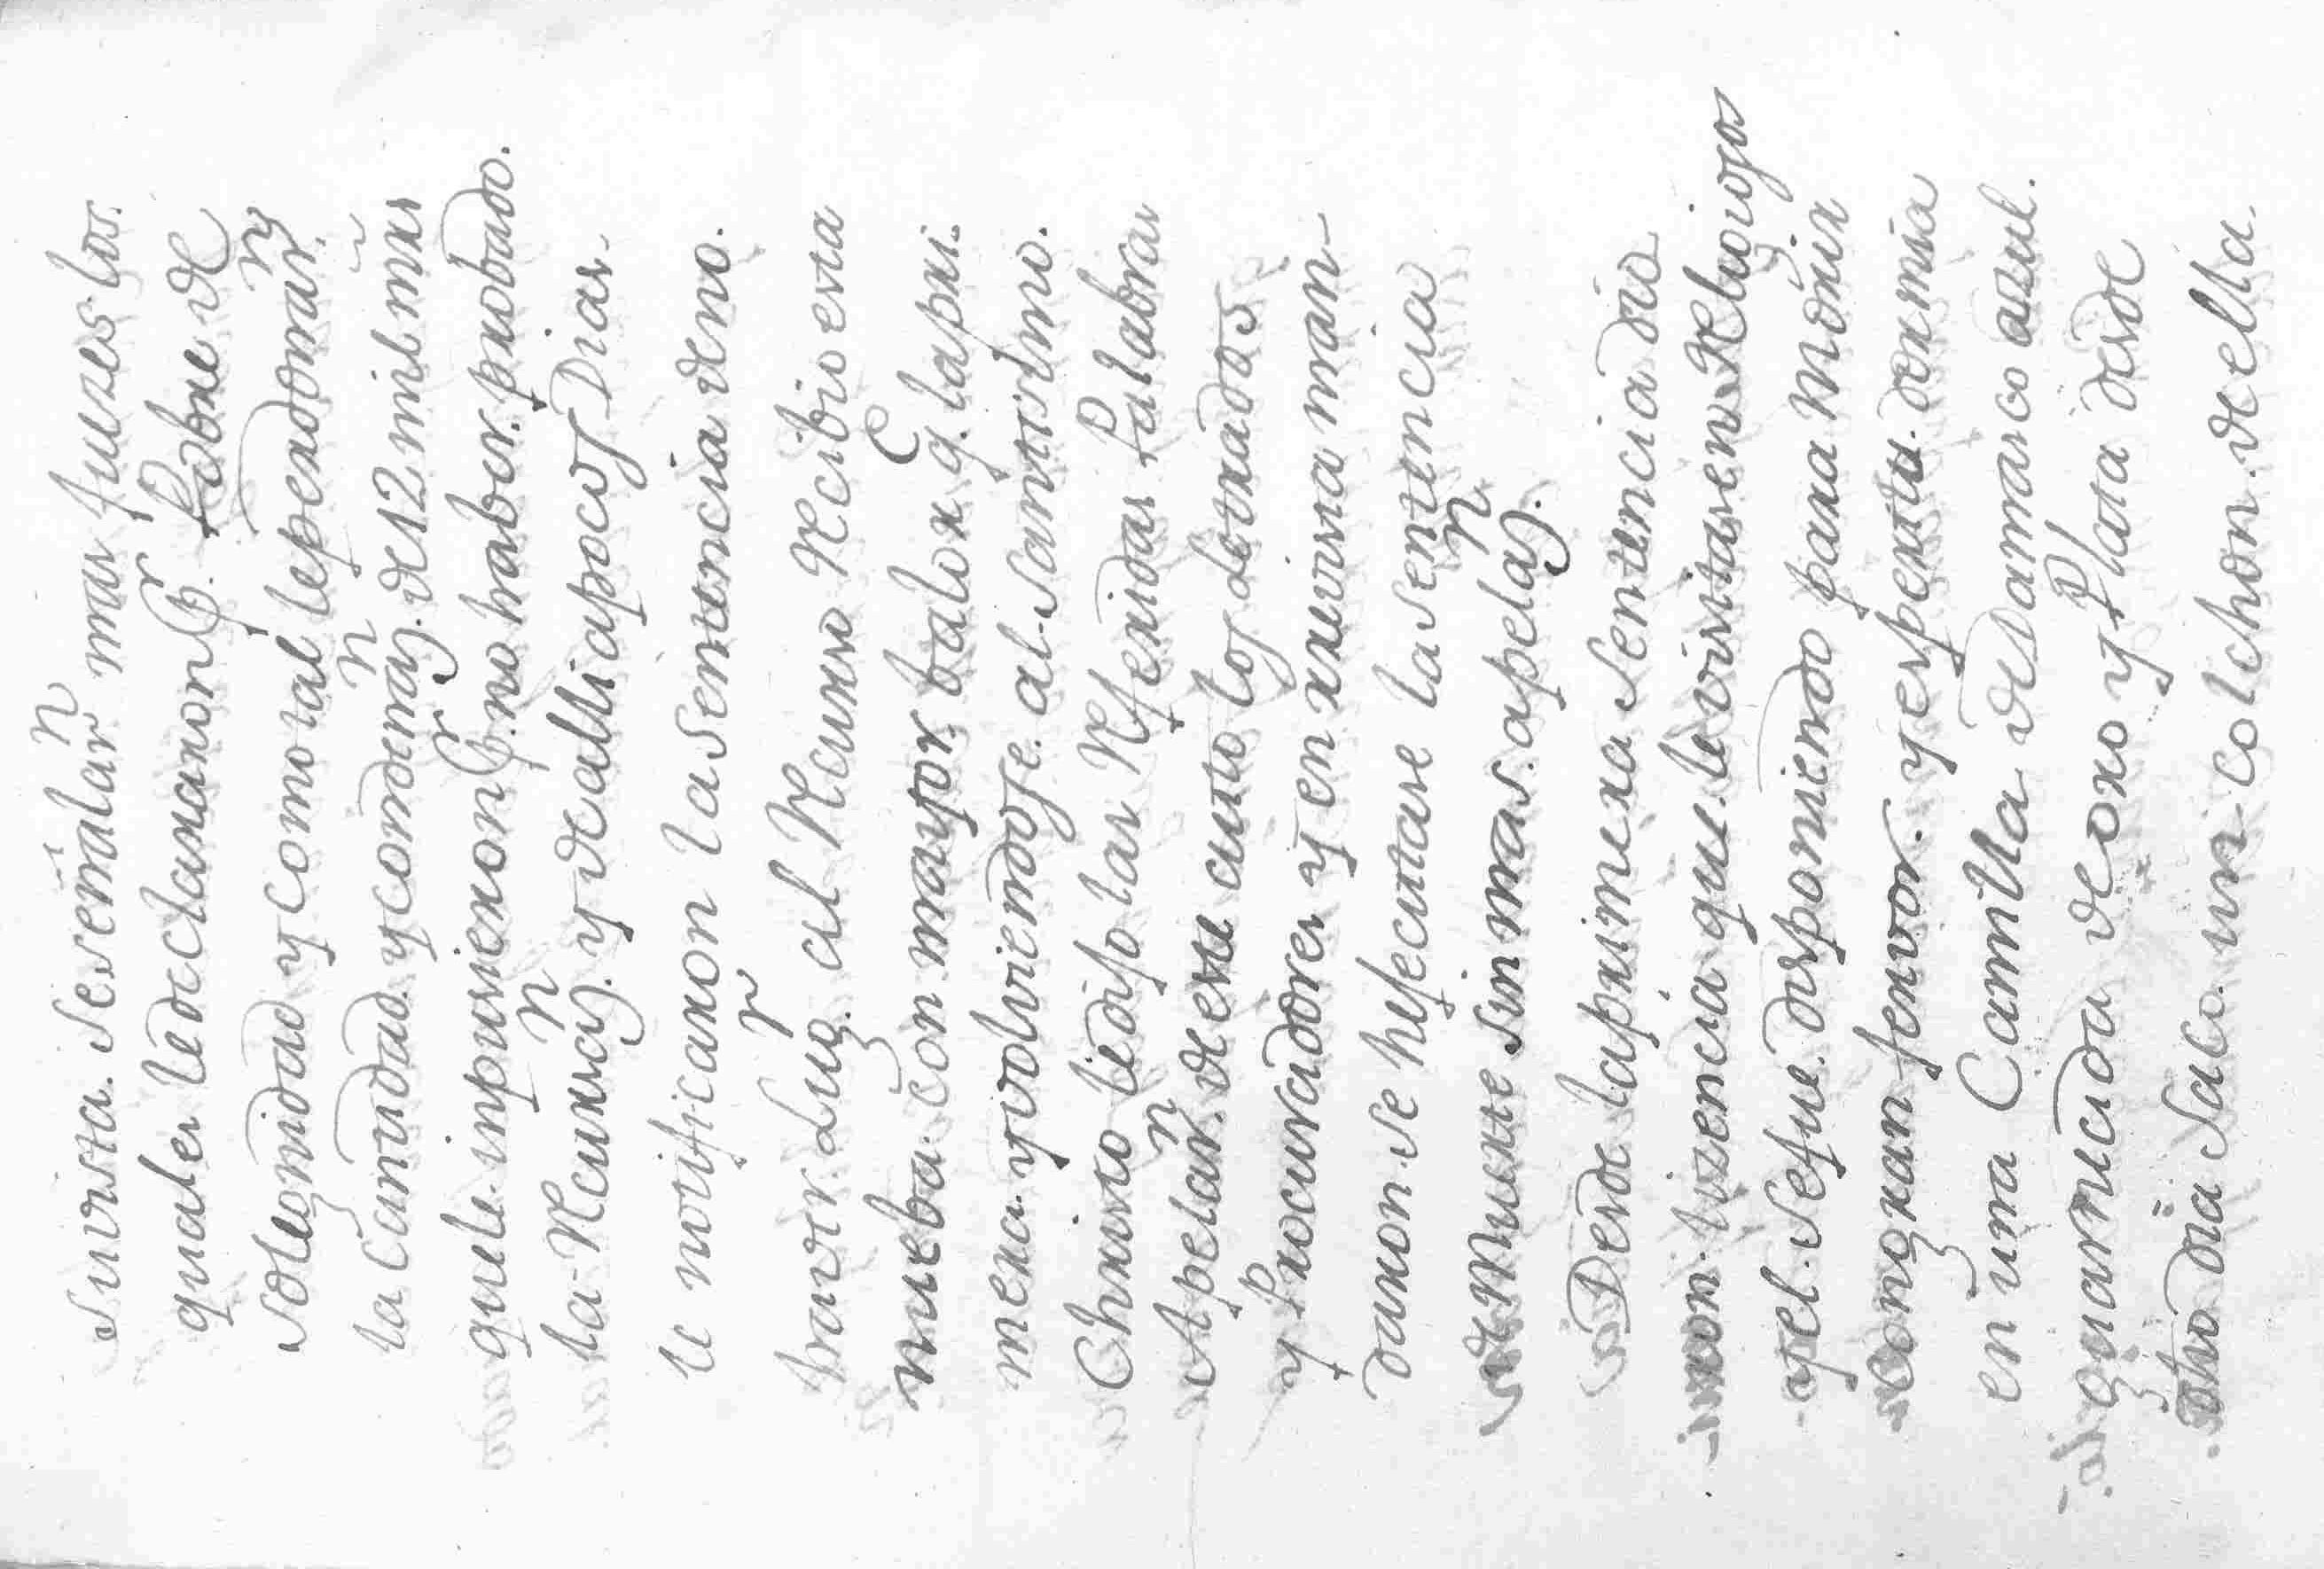 su vista. Se señalarⁿ mas Juezes. los.
quales le declararon pʳ. Pobre de
solegnidad y como tal le perdonarⁿ.
la Cantidad. y condenazⁿ. de 12 mil mrs̃
que le inpusieron pʳ. no haber. probado.
la Recusazⁿ. y de alli a pocos Dias.
le notificaron la sentencia de no.
haver. Lugʳ. al Recurso Recibio esta
nueba. con mayor. balor q̃. la pri-
mera. y volviendose. al Santissimo.
Christo le dijo las Referidas Palabras
Apelarⁿ. de este auto los Letrados
y Procuradores y en xxevista man-
daron se hejecutase la sentencia
de Muerte sin mas. apelazⁿ.
Desde la primera Sentencia dio
con. lizencia que. le visitasen Religiosos
y el. Se fue. disponiendo para Morir
con gran fervor. y espertu. dormia
en una Camilla de Damasco azul.
guarnecida de oro y Plata desde
otro dia Saco. un colchon. de ella.